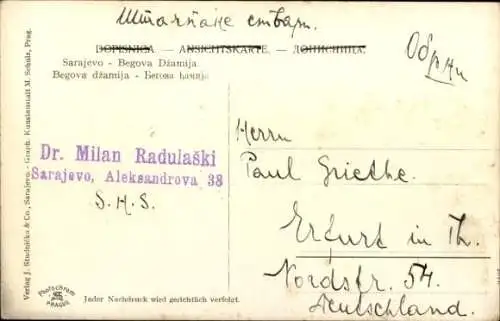 Штампане ствари.
DOPISNICA — ANSICHTSKARTE. — ДОПИСНИЦА.
Sarajevo - Begova Džamija.
Begova džamija - Бегова џамија
Dr. Milan Radulaški
Sarajevo, Aleksandrova 38
S.H.S.
Herrn
Paul Griethe.
Erfurt in Th.
Nordstr. 54.
Deutschland.
Verlag J. Studnička & Co., Sarajevo - Graph. Kunstanstalt M. Schulz, Prag.
Photochrom
PRAGUE
Jeder Nachdruck wird gerichtlich verfolgt.